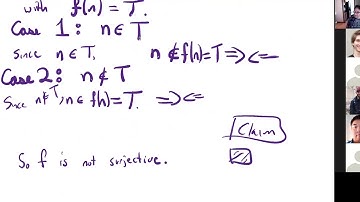 with f(n) = T.
Case 1: n ∈ T
Since n ∈ T, n ∉ f(n) = T ⇒⇐
Case 2: n ∉ T
Since n ∉ T, n ∈ f(n) = T. ⇒⇐
Claim
So f is not surjective.